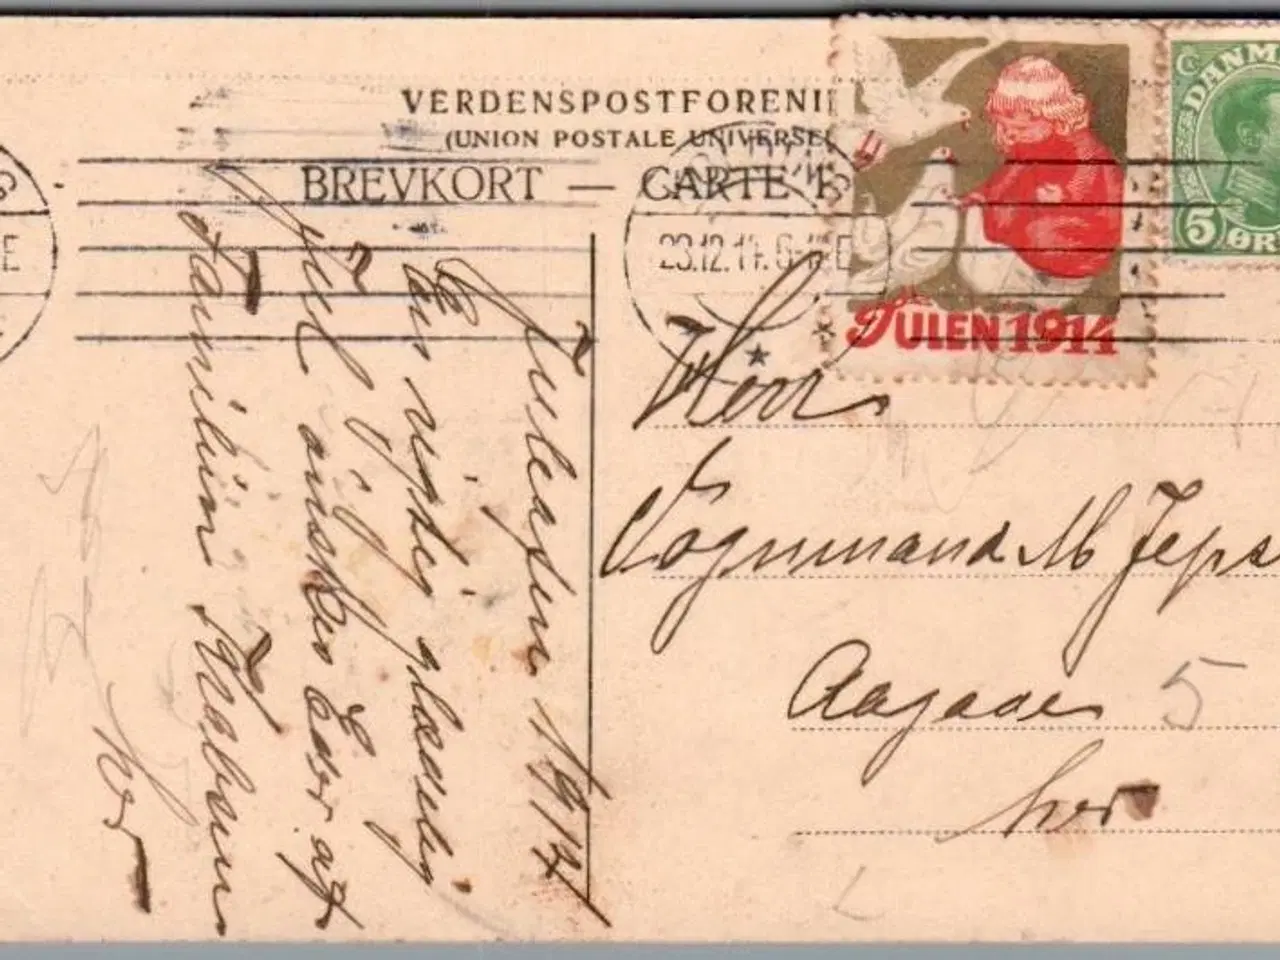 VERDENSPOSTFORENI
(UNION POSTALE UNIVERSE
BREVKORT — CARTE
23.12.14. 6-12E
JULEN 1914
DANM
5 ØR
Juleaften 1914
En rigtig glædelig
Jul ønskes Eder af
Familien
her
Herr
Vognmand M Jeps
Aagade 5
her